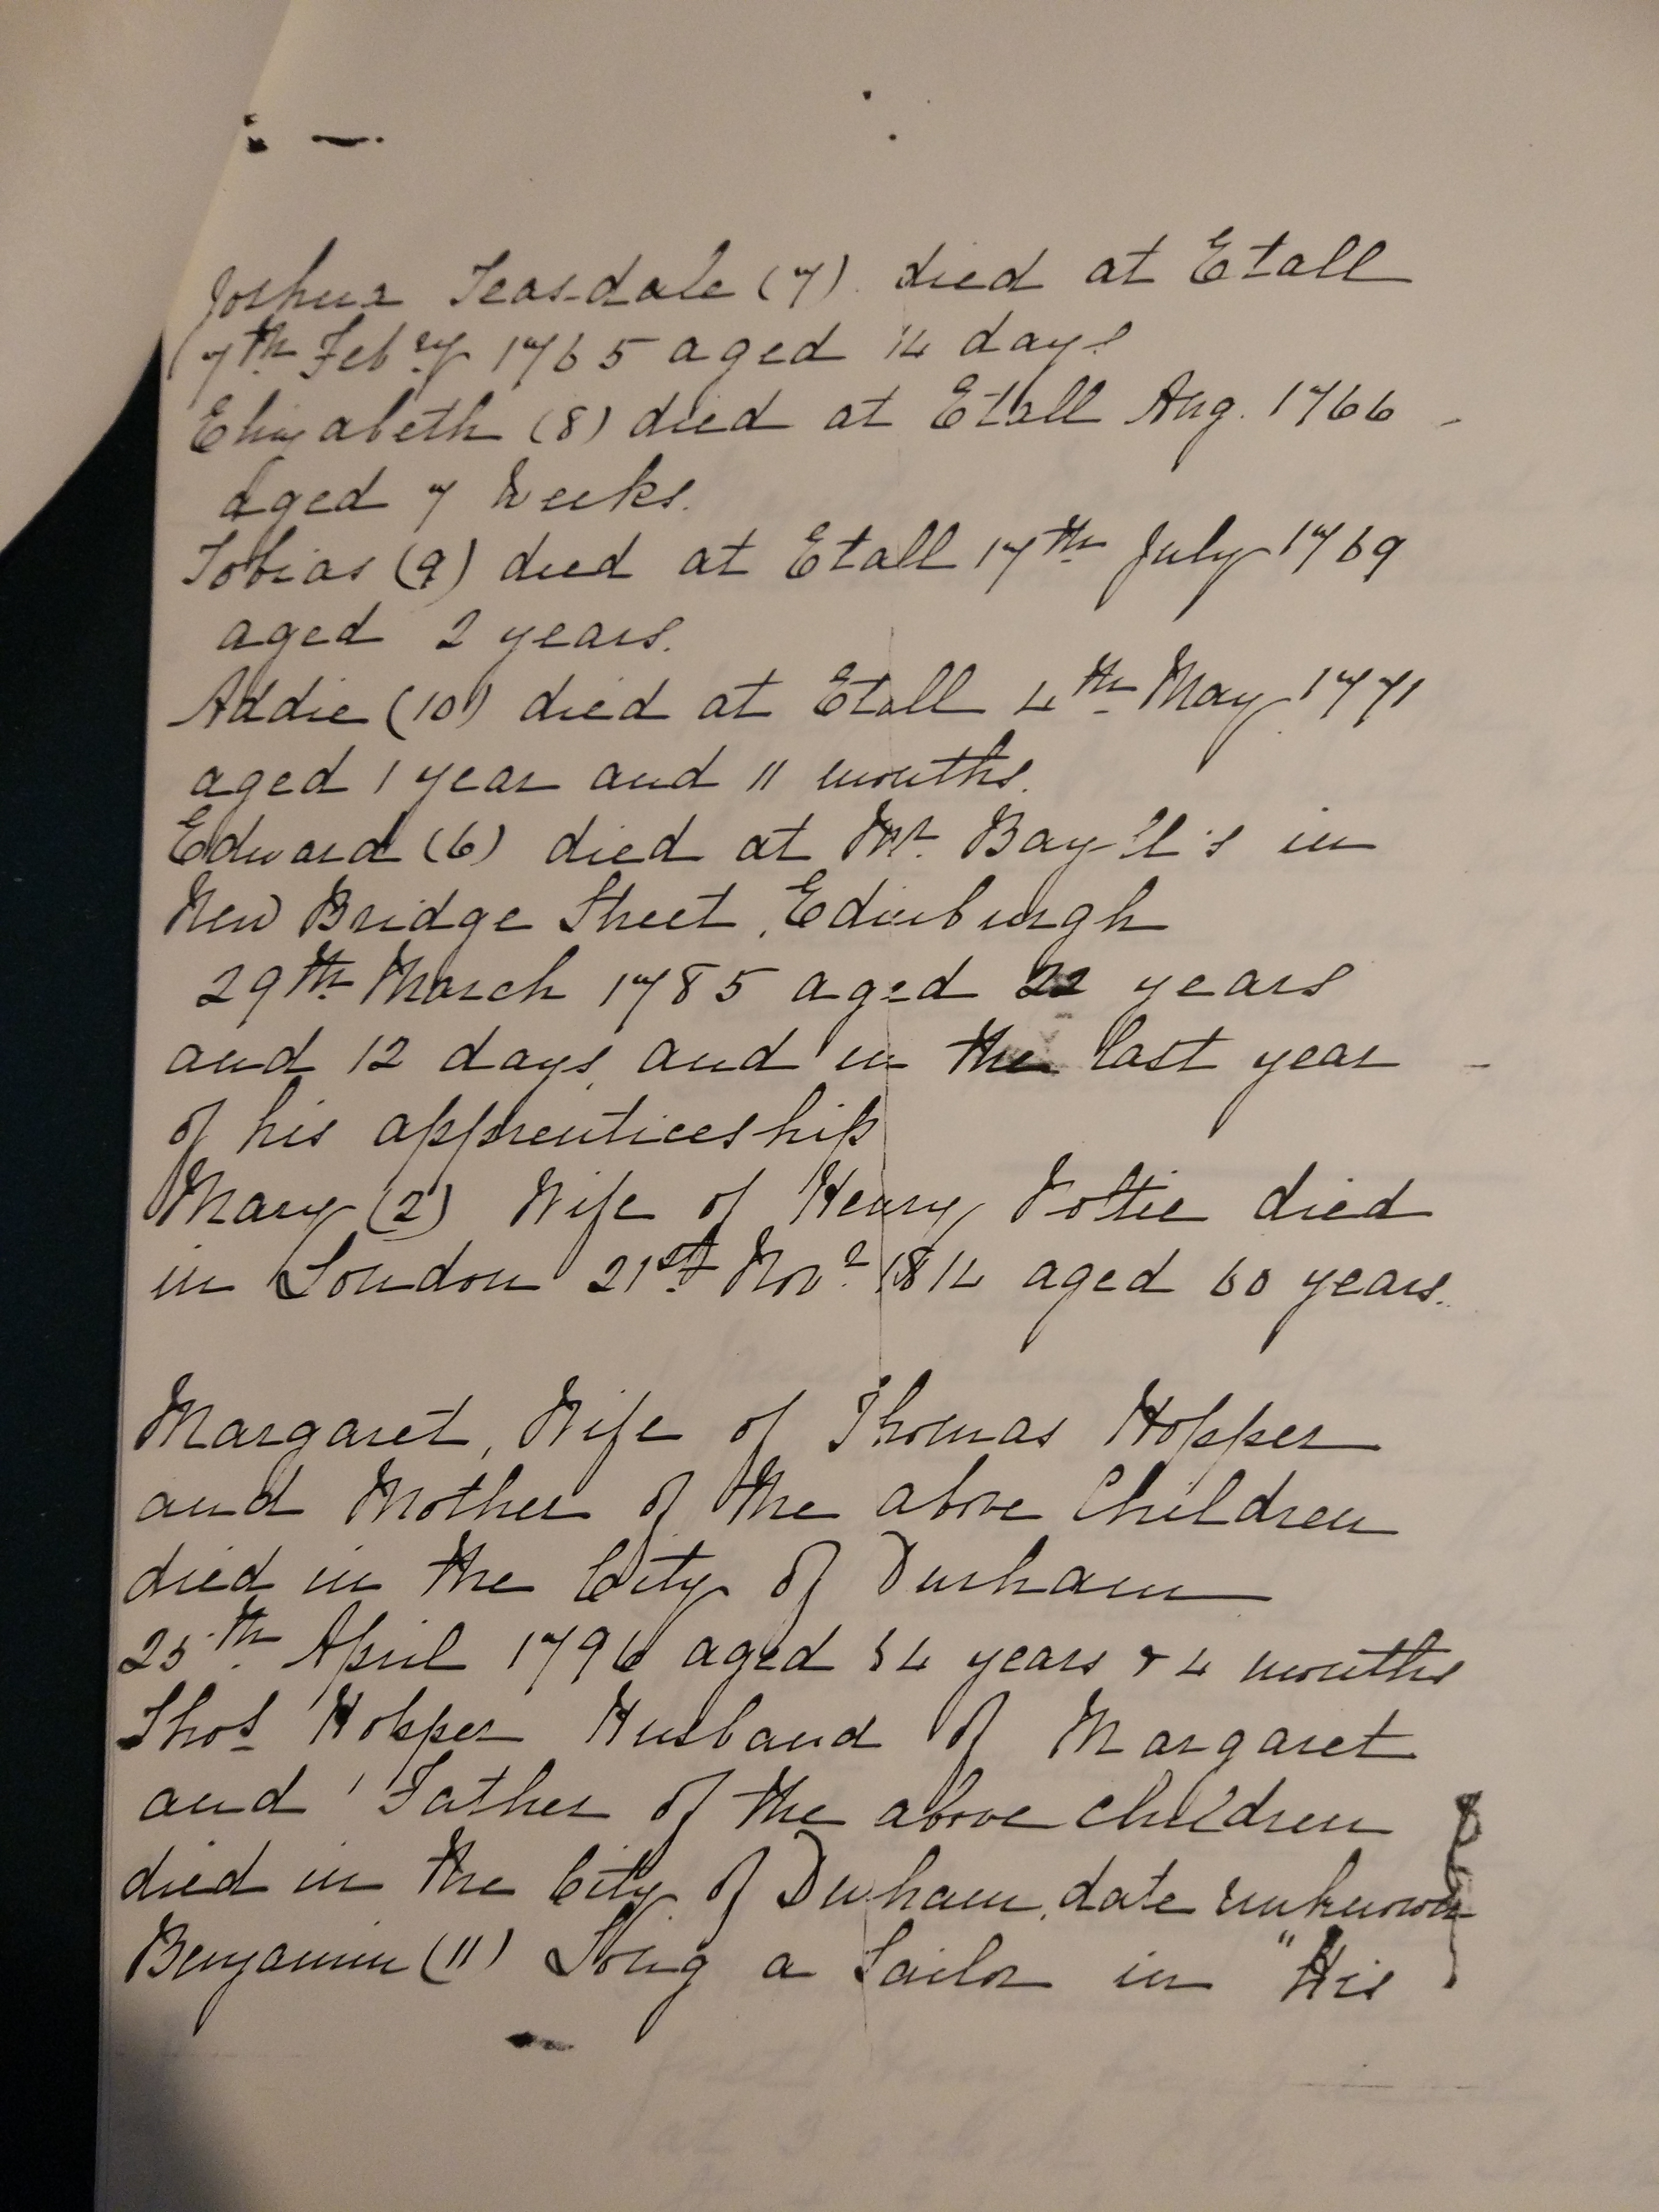 Joshua Teasdale (7) died at Etall
7th Feby 1765 aged 14 days
Elizabeth (8) died at Etall Aug. 1766
aged 7 Weeks.
Tobias (9) died at Etall 17th July 1769
aged 2 years.
Addie (10) died at Etall 4th May 1771
aged 1 year and 11 months.
Edward (6) died at Mr. in
New Bridge Street, Edinburgh
29th March 1785 aged 22 years
and 12 days and in the last year
of his apprenticeship
Mary (2) Wife of Henry died
in London 21st Novr 1814 aged 60 years.
Margaret, Wife of Thomas Hopper
and Mother of the above Children
died in the City of Durham
25th April 1796 aged years & 4 months
Thos Hopper Husband of Margaret
and Father of the above children
died in the City of Durham, date unknown
Benjamin (11) Long a Sailor in "His